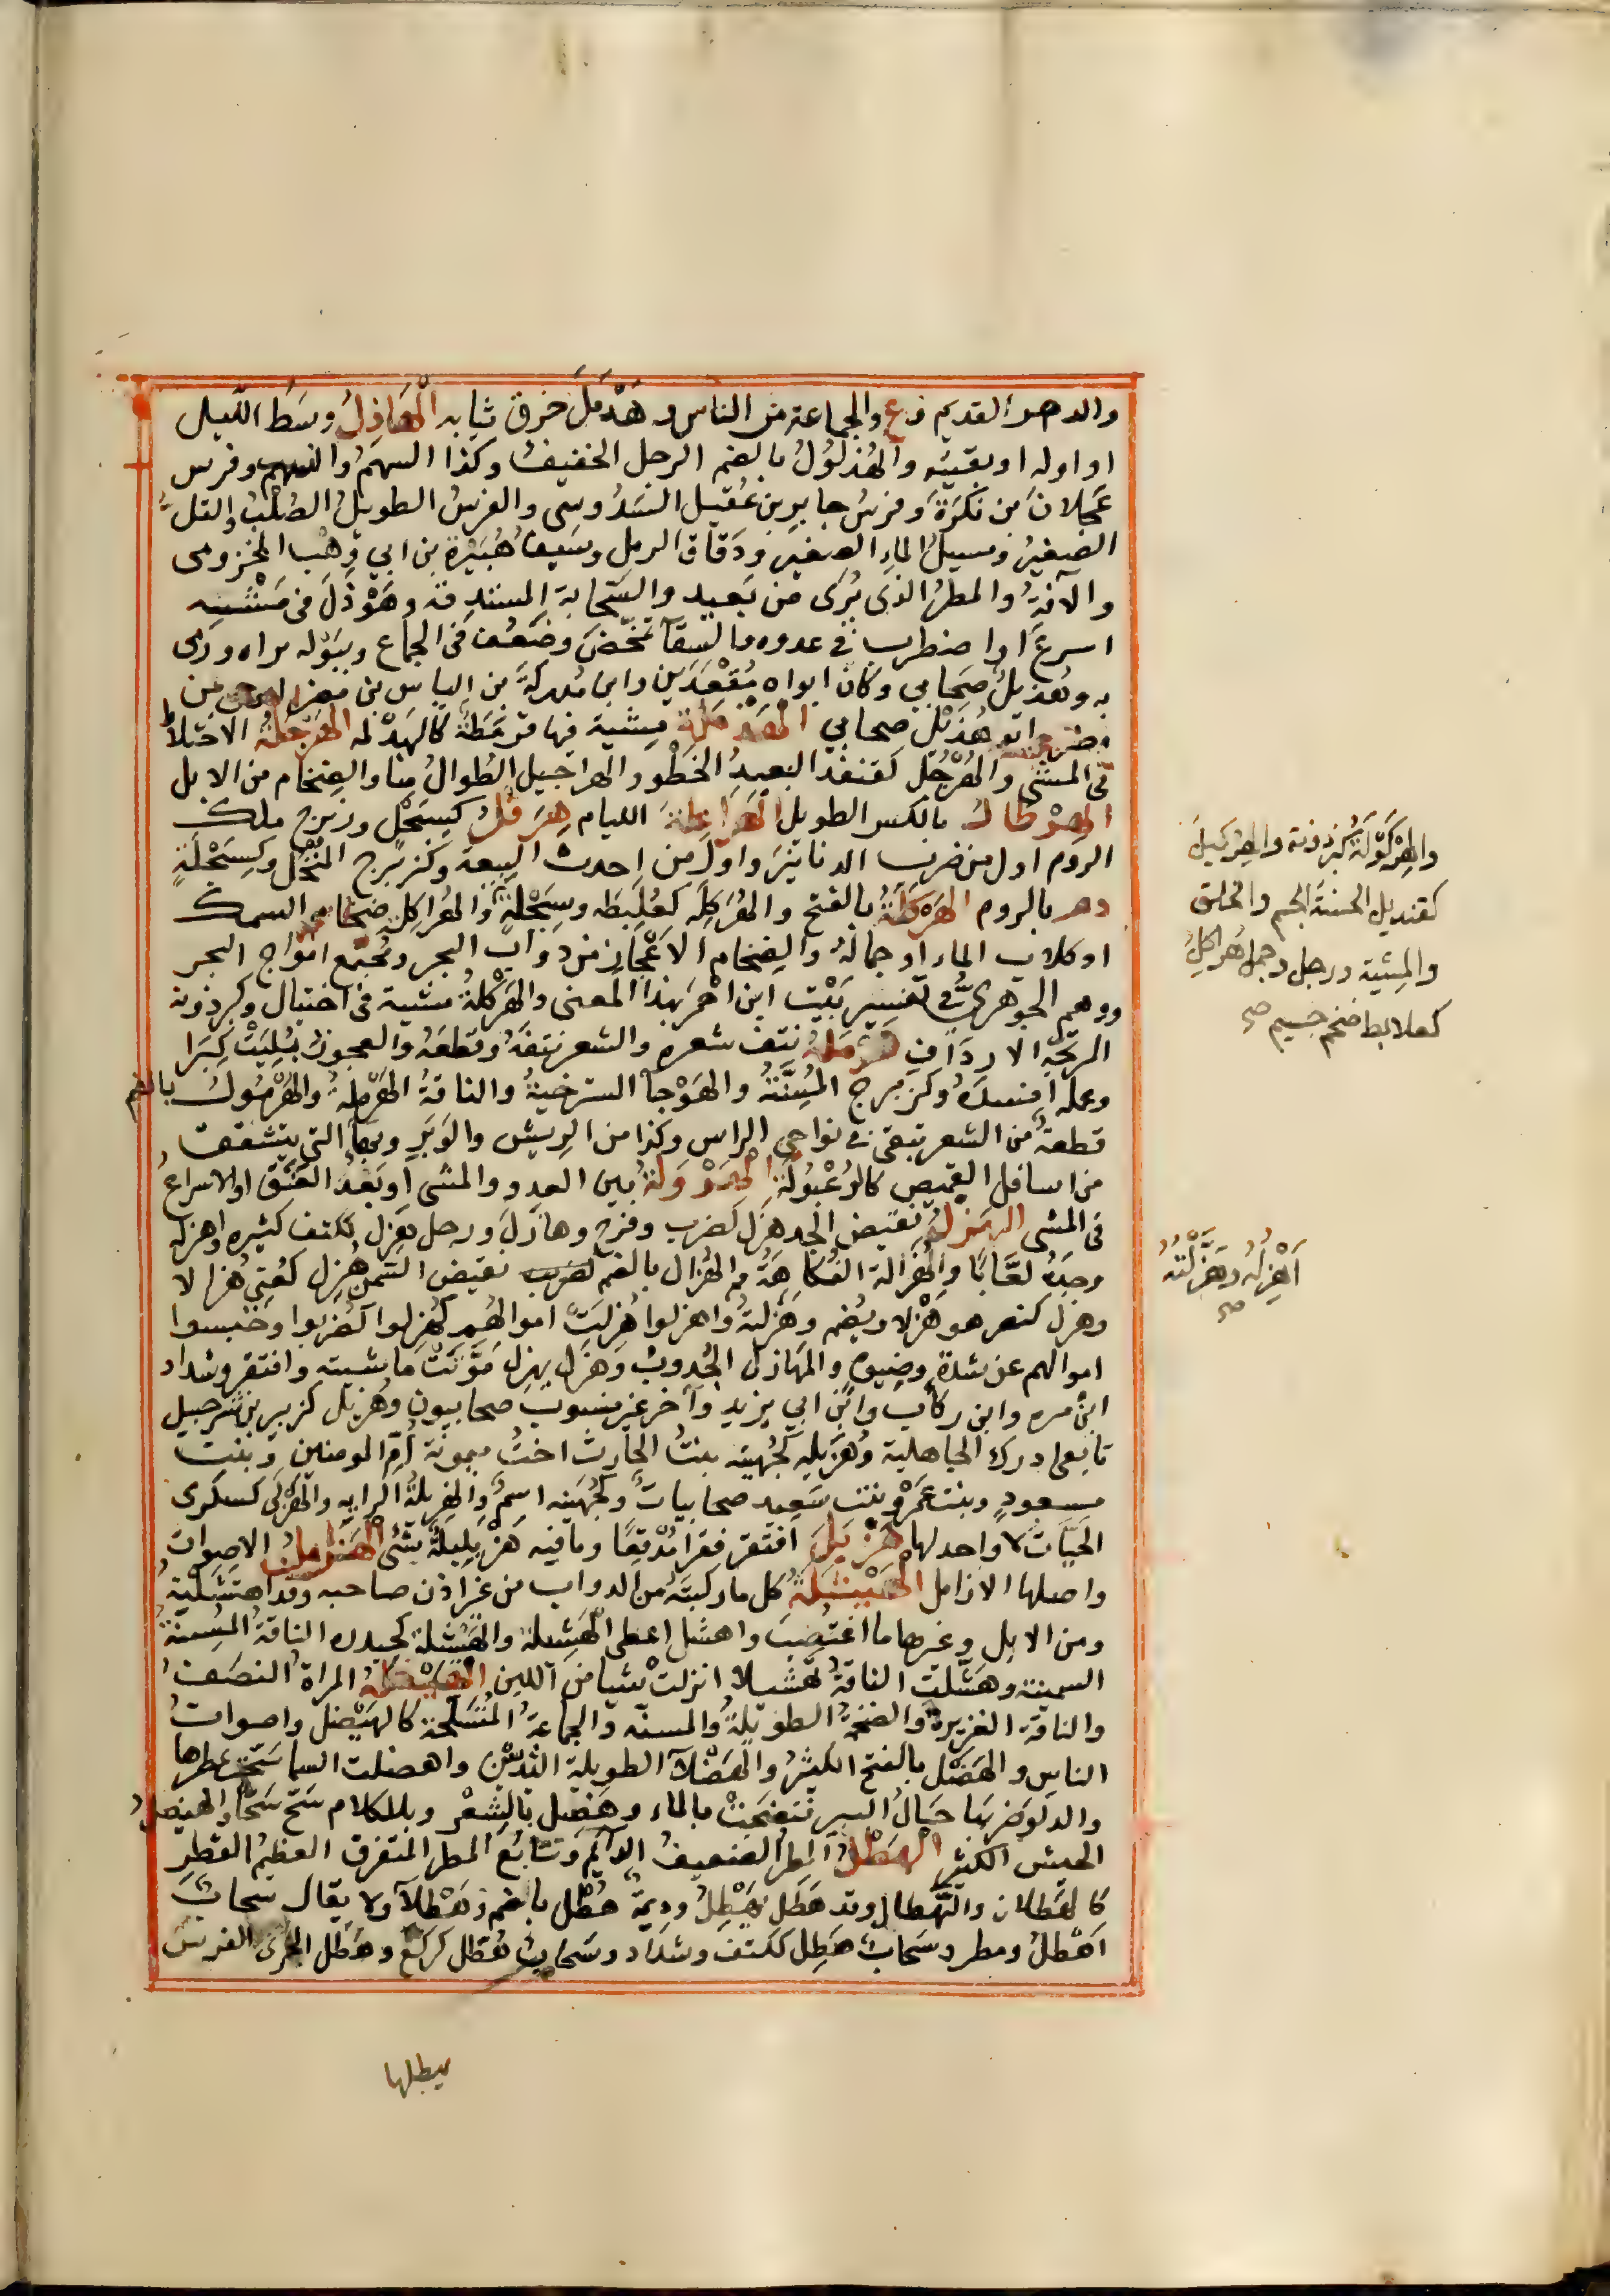 والدهر القديم و ع والجماعة من الناس و هَدْمَلَ خرق ثيابه الهَاذِلُ وسَطُ الليل
او اوله او بقيته والهُذلُولُ بالضم الرجل الخفيف وكذا السهمُ والذئب وفرس
عَجلانَ من نَكرَةَ وفرسُ جابرِ بن عُقيل السَدُوسِي والفرسُ الطويلُ الصُلْبُ والتل
الصغيرُ ومسيلُ الماءِ الصغير ودَقاق الرمل وسَيفُ هُبَيْرَةَ بن ابي وَهْب المخزومى
والآفةُ والمطرُ الذى يُرَى من بَعيد والسَّحابة المستدقة وهَوْذَلَ فى مَشْيِه
اسرعَ او اضطرب فى عدوه والسِّقآ تمخَّضَ وضَعُف فى الجماع وببَوْله براه ورَمى
به وهُذيلُ صَحابي وكان ابواه مُقْعَدَينِ وابن مُدركةَ بن الياس بن مضر ابو حى من
مضر وابو هُذَيْل صحابي الهَذْمَلة مِشية فيها قرمَطَة كالهَدْلمة الهَرْجَلَةُ الاختلاط
فى المشى والهُرْجُل كقنفذ البعيدُ الخَطْو والهراجيل الطُوالُ منا والضخام من الابل
الهِرْطَالُ بالكسر الطويل الهَرَاعِلَة الليام هِرَقْلُ كسِبَحْل وزبرج ملك
الروم اول من ضرب الدنانيرَ واولُ من احدث البيعة وكزبرج المُنْخُل وكسِبَحْلَةٍ
دهر بالروم الهَرْكَلَةُ بالفتح والهُرَكِلَه كعُلَبِطَه وسِبَحْلَةٍ والهُراكِلة ضِخام السمك
او كلاب الماء او جماله والضِخام الاعْجاز من دوابّ البحر ومُجتمع امواج البحر
ووهم الجوهرىُّ فى تفسير بَيْت ابن احمر بهذا المعنى والهَرْكَلةُ مشية فى اختيال وكبرذونة
الرَّجِّة الارداف هَرْمَلَهُ نتف شعره والشعر نتفَهُ وقطعَهُ والعجوز بَلِيَتْ كِبَرا
وعمله افسدهُ وكزبرج المُسِنَّةُ والهَوْجآ المسترخيةُ والناقةُ الهَرِمَةُ والهُرْمُولُ بالضم
قطعة من الشعر تبقى فى نواحى الراس وكذا من الريش والوَبَر وبهآ التى يتشقق
من اسافل القميص كالرُعْبُولَة الهَرْوَلةُ بين العدو والمشى او بَعْدُ العَنَق او الاسراعُ
فى المشى الهَزْلُ نقيض الجد هَزَلَ كضرب وفرح وهازلَ ورجل هَزِل ككتف كثيره واهزله
وجدَه لعّابًا والهُزالة الفُكاهَةُ والهُزال بالضم نقيض السمن هُزِل كعُنى هُزالا
وهزل كنصر هَزْلا ويُضم وهَزَلتهُ واهزلوا هُزِلَتْ اموالهُم كهَزلوا كضربوا وحَبسوا
اموالهم عن شدة وضيق والمهازل الجُدوب وهَزَل يهزل مَوَّتَتْ ماشيته وافتقر وشداد
ابن مره وابن رِئاب وابن ابي يزيد وآخر غير منسوب صحابيون وهُزيل كزبير بن شرحبيل
تابعى ادرك الجاهلية وهُزَيله كجُهينه بنتُ الحارث اختُ ميمونة اُمّ المومنين وبنت
مسعودٍ وبنت عَمْرو وبنت سَعيد صحابيات وكجُهَينه اسمٌ والهَزِيلةُ الرايه والهَزْلَى كسكرى
الحَيّات لا واحد لها هَزْبَلَ افتقر فقرا مُدْقِعًا وما فيه هَزْبَلِيلَةٌ شئٌ الهَزَامِلُ الاصوات
واصلها الازامل الهَيْشَلَة كل ما ركبتَهُ من الدواب من غير اذن صاحبه وقد اهتَشَلْتهُ
ومن الابل وغيرها ما اغتُصِب واهشل اعطى الهَشِيلة والهَيْشلة كحيدره الناقةُ المُسِنةُ
السمينة وهَشّلت الناقةُ تهشيلا انزلت شيا من اللبن الهَيْضَلةُ المراة النصَفُ
والناقة الغزيرة والضخمة الطويلةُ والمسنّه والجماعةُ المُتسَلِّحة كالهَيْضَل واصوات
الناس والهَضْل بالفتح الكثيرُ والهَضْلآ الطويلة الثديَيْن واهضلت السما سَحَّ عطرها
والدلوَ ضربها جَالُ البير فنَضَحَتْ بالماء وهضل بالشِعْر وبالكلام سَحّ سَحًّا والهيضل
الجيش الكثير الهَطْلُ المطر الضعيفُ الدايم وتتابُع المطر المتفرق العظيم القطر
كالهَطَلان والتَهْطال وقد هَطَل يَهْطِلُ وديمة هُطْل بالضم وهَطْلآ ولا يقال سحاب
اَهْطلُ ومطر وسَحابٌ هَطِل ككتف وشدّاد وسَحاب هُطّل كركّع وهَطَل الجرى الفرسَ
يبطلها
والهِرْكَوْلَة كبرذونة والهِرْكيلَ
كقنديل الحسنة الجسم والخلق
والمِشية ورجل وجمل هُراكِلٌ
كعلابط ضخم جسيم صح
اُهْزِلُه وهَزَّلتُهُ
صح